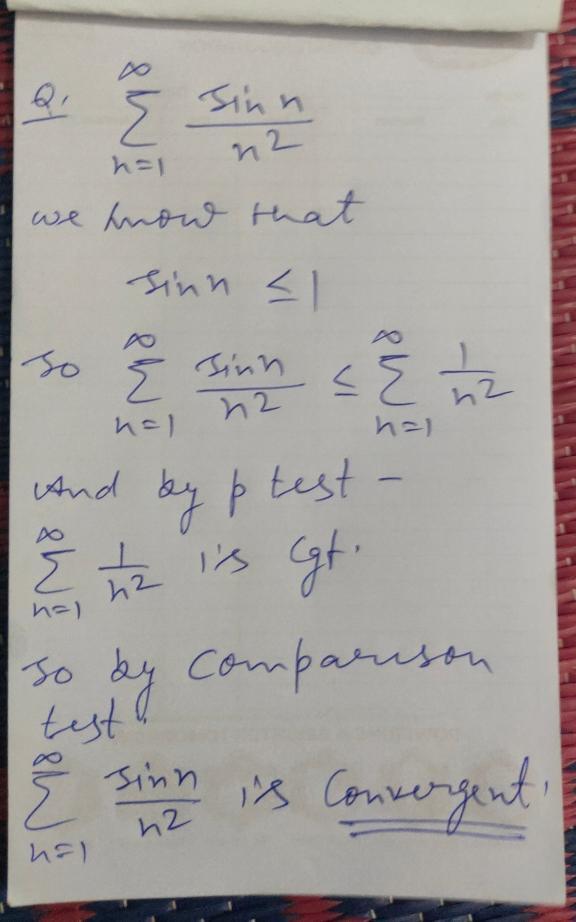 Q. ∞ ∑ n=1 sin n / n²
we know that
sin n ≤ 1
so ∞ ∑ n=1 sin n / n² ≤ ∞ ∑ n=1 1 / n²
And by p test -
∞ ∑ n=1 1 / n² is Cgt.
so by comparison
test.
∞ ∑ n=1 sin n / n² is Convergent.